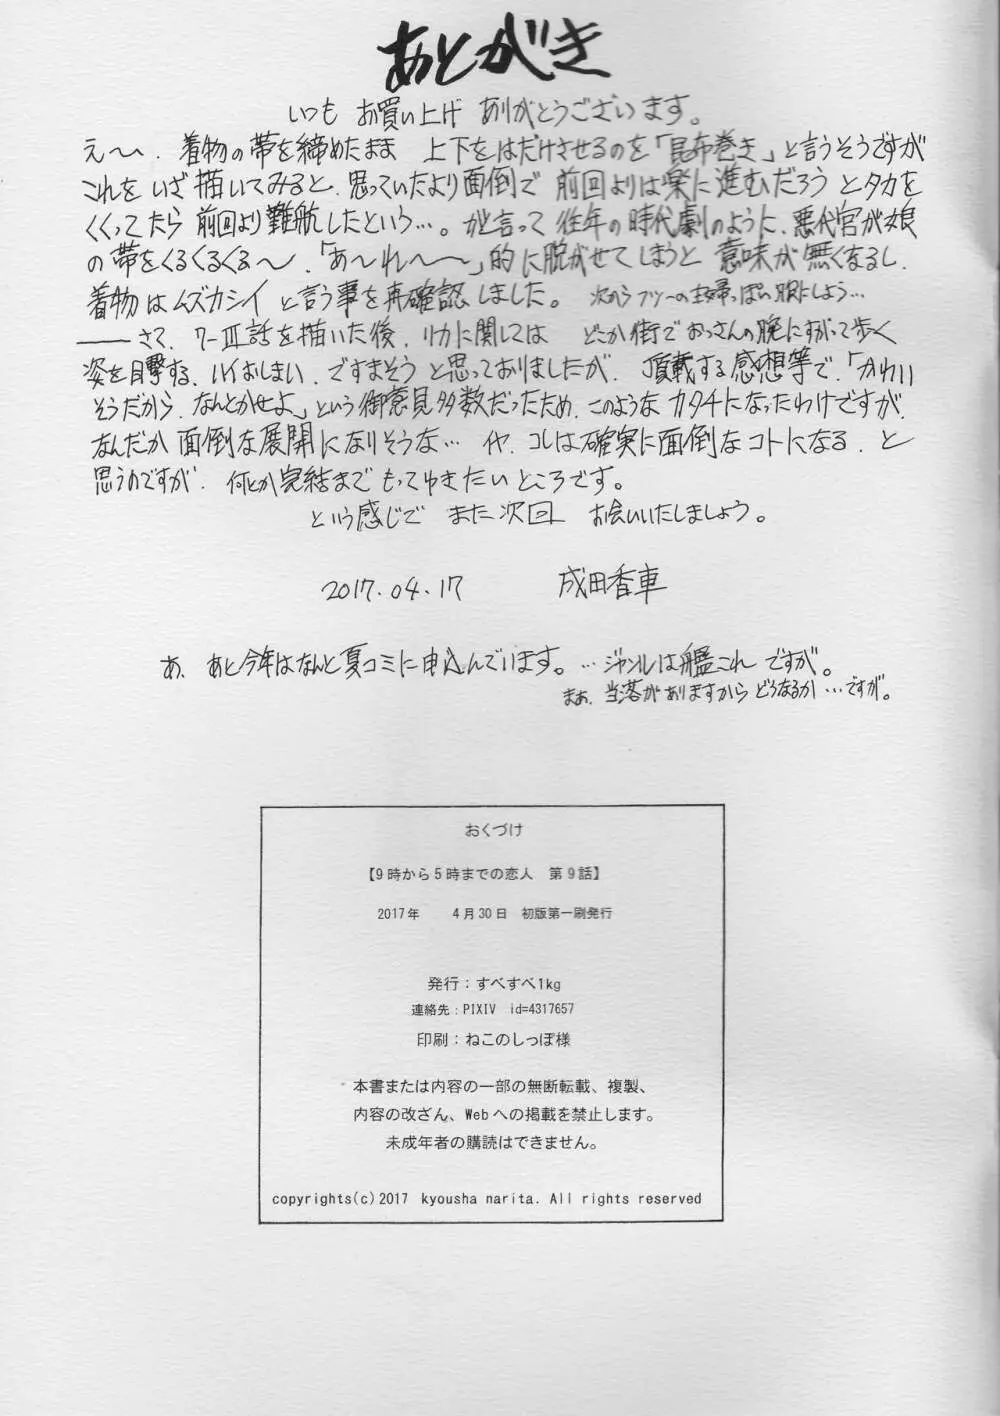 あとがき
いつも お買い上げ ありがとうございます。
え〜〜、着物の帯を締めたまま 上下をはだけさせるのを「昆布巻き」と言うそうですが
これを いざ描いてみると、思っていたより面倒で 前回よりは楽に進むだろう とタカを
くくってたら 前回より難航したという…。が言って 往年の時代劇のように、悪代官が娘
の帯をくるくるくる〜、「あ〜れ〜〜」的に脱がせてしまうと 意味が無くなるし、
着物はムズカシイ と言う事を再確認しました。 次からフツーの主婦っぽい服にしよう…
――さて、7-Ⅲ話を描いた後、リカに関しては どこか街でおっさんの腕にすがって歩く
姿を目撃する、ハイおしまい、ですまそう と思っておりましたが、頂戴する感想等で、「かわい
そうだから、なんとかせよ」という御意見多数だったため、このような カタチになったわけですが、
なんだか 面倒な展開になりそうな… イヤ、コレは確実に面倒なコトになる、と
思うのですが、何とか完結まで もってゆきたいところです。
という感じで また次回 お会いいたしましょう。
2017.04.17 成田香車
あ、あと今年はなんと夏コミに申込んでいます。…ジャンルは艦これ ですが。
まぁ、当落がありますから どうなるか…ですが。
おくづけ
【9時から5時までの恋人 第9話】
2017年 4月30日 初版第一刷発行
発行：すべすべ1kg
連絡先：PIXIV id=4317657
印刷：ねこのしっぽ様
本書または内容の一部の無断転載、複製、
内容の改ざん、Webへの掲載を禁止します。
未成年者の購読はできません。
copyrights(c)2017 kyousha narita. All rights reserved